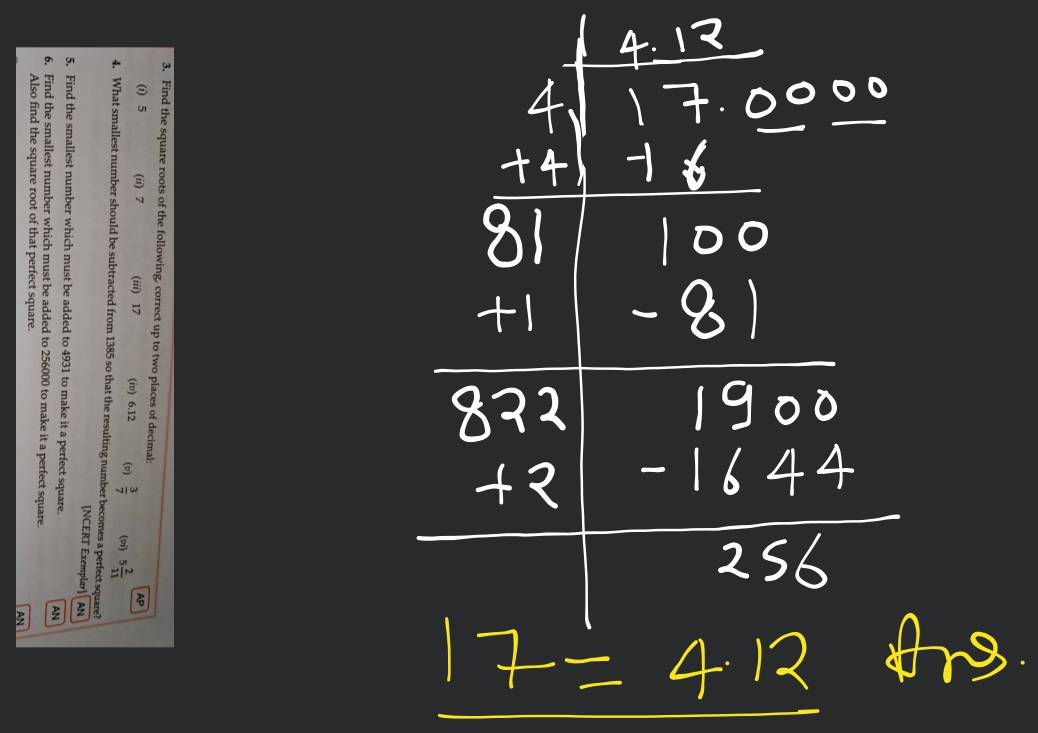 3. Find the square roots of the following, correct up to two places of decimal:
(i) 5 (ii) 7 (iii) 17 (iv) 6.12 (v) 3/7 (vi) 5 2/11 AP
4. What smallest number should be subtracted from 1385 so that the resulting number becomes a perfect square?
[NCERT Exemplar] AN
5. Find the smallest number which must be added to 4931 to make it a perfect square. AN
6. Find the smallest number which must be added to 256000 to make it a perfect square.
Also find the square root of that perfect square. AN
4.12
4 17.0000
+4 -16
81 100
+1 -81
822 1900
+2 -1644
256
17 = 4.12 Ans.